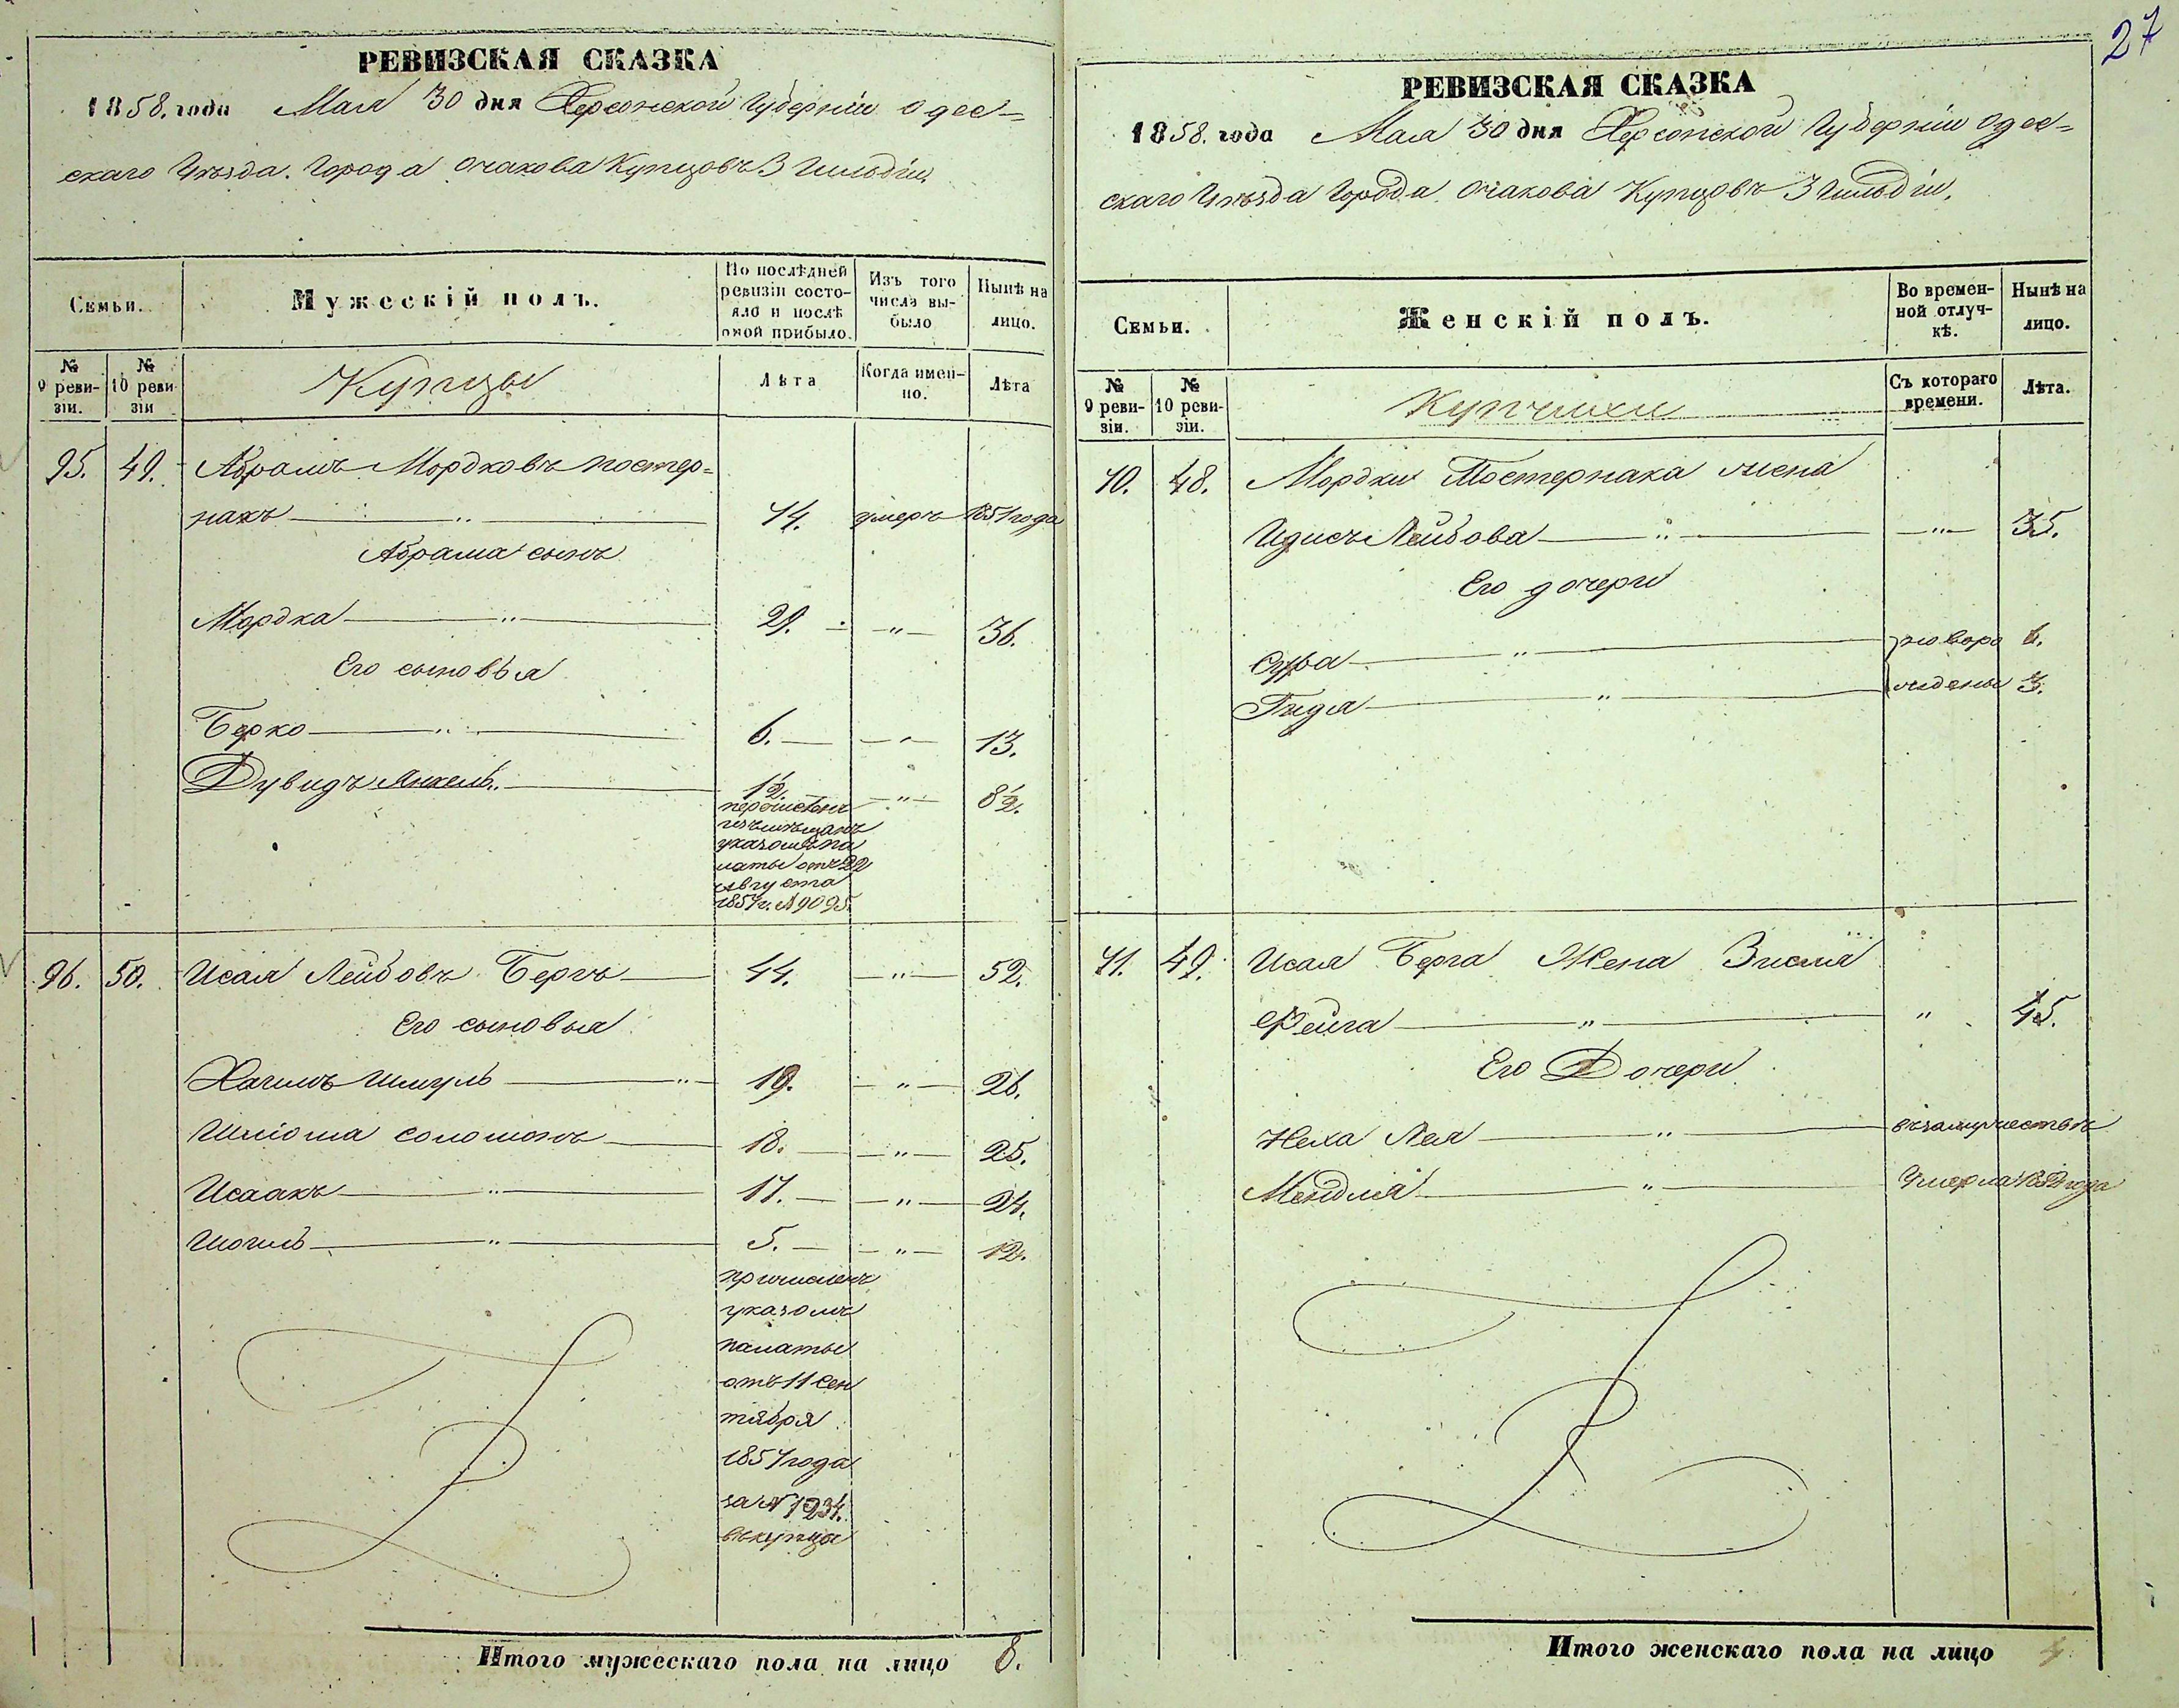 27
РЕВИЗСКАЯ СКАЗКА
1858. года Мая 30 дня Херсонской Губерніи Одес=
скаго Уѣзда. Города Очакова Купцовъ 3 Гильдіи.
Семьи.
Мужескій полъ.
По послѣдней ревизіи состо-яло и послѣ оной прибыло.
Изъ того числа вы-было
Нынѣ на лицо.
№ 9 реви-зіи.
№ 10 реви-зіи
Купцы
Лѣта
Когда имен-но.
Лѣта
95. 49. Абрамъ Мордковъ Постер=
накъ 44. умеръ 1857 года
Абрама сынъ
Мордка 29. 36.
Его сыновья
Берко 6. 13.
Дувидъ Янкель. 1/2. 8 1/2.
перечисленъ
изъ мѣщанъ
указомъ Па
латы отъ 22
Августа
1857 г. № 9095.
96. 50. Исая Лейбовъ Бергъ 44. 52.
Его сыновья
Хаимъ Шмуль 19. 26.
Шліома Соломонъ 18. 25.
Исаакъ 17. 24.
5. 12.
причисленъ
указомъ
палаты
отъ 11 Сен
тября
1857 года
за № 1234.
въ купцы
Итого мужескаго пола на лицо 8.
РЕВИЗСКАЯ СКАЗКА
1858. года Мая 30 дня Херсонской Губерніи Одес=
скаго Уѣзда Города Очакова Купцовъ 3 Гильдіи.
Семьи.
Женскій полъ.
Во времен-ной отлуч-кѣ.
Нынѣ на лицо.
№ 9 реви-зіи.
№ 10 реви-зіи.
Купчихи
Съ котораго времени.
Лѣта.
40. 48. Мордки Постернака жена
Идись Лейбова 35.
Его дочери
Сура новоро 6.
Гидя жденые 3.
41. 49. Исая Берга Жена Зисля
Фейга 45.
Его Дочери
Неха Лея въ замужествѣ
Мендля Умерла года
Итого женскаго пола на лицо 4